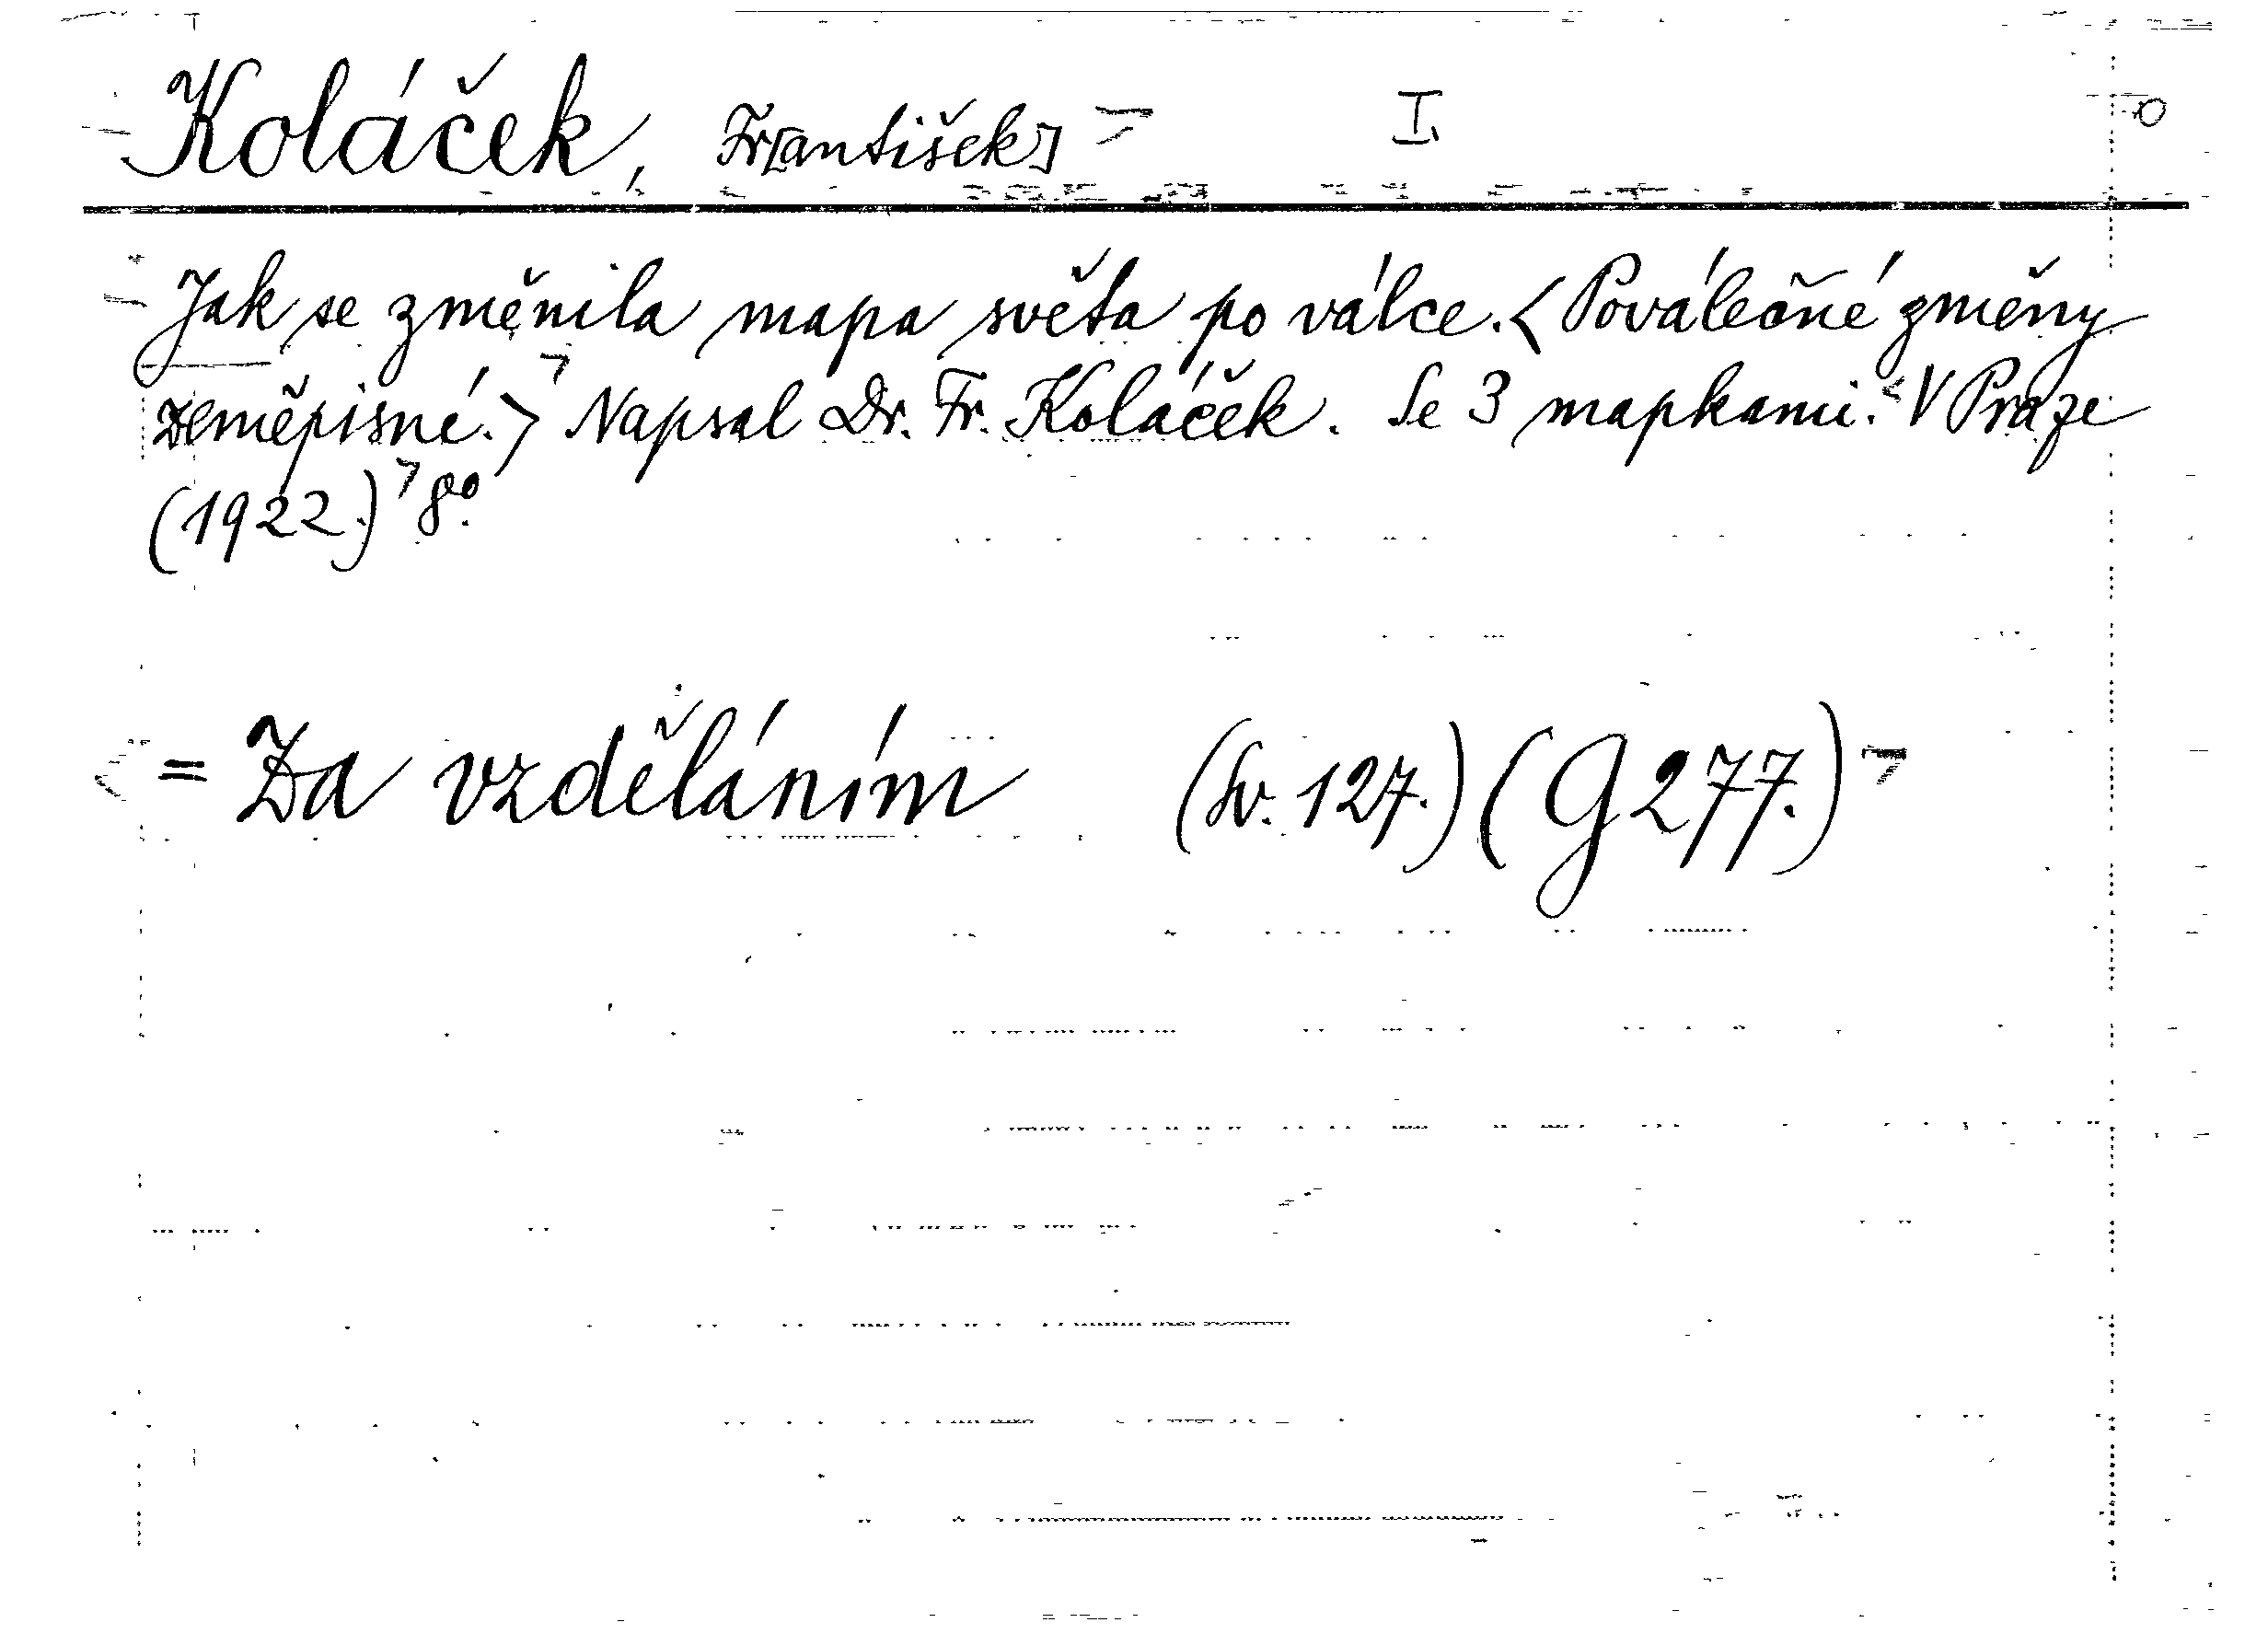 Koláček, Fr[antišek] I.
Jak se změnila mapa světa po válce. < Poválečné změny
zeměpisné. > Napsal Dr. Fr. Koláček. Se 3 mapkami. V Praze
(1922.) 8º.
= Za vzděláním (Sv. 127.) (G 277.)